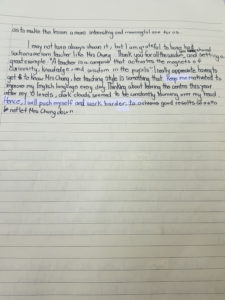 as to make the lesson a more interesting and meaningful one for us
I may not have always shown it, but I am grateful to being had
such an awesome teacher like Mrs Chang. Thank you for all the and setting a
good example. "A teacher is a compass that activates the magnets of
curiosity, knowledge, and wisdom in the pupils" I really appreciate having to
get to know Mrs Chang, her teaching style is something that keep me motivated to
improve my English language every day. Thinking about leaving the centre this year
after my 'O' levels, dark clouds seemed to be constantly hovering over my head
Hence, I will push myself and work harder, to achieve good results so as to
not let Mrs Chang down